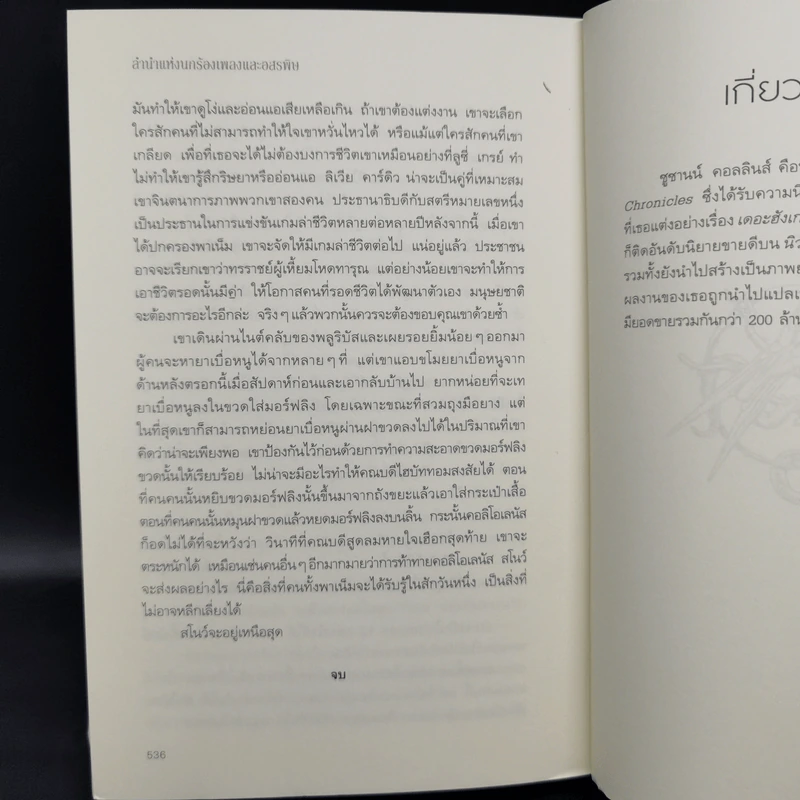 ลำนำแห่งนกร้องเพลงและอสรพิษ
มันทำให้เขาดูโง่และอ่อนแอเสียเหลือเกิน ถ้าเขาต้องแต่งงาน เขาจะเลือก
ใครสักคนที่ไม่สามารถทำให้ใจเขาหวั่นไหวได้ หรือแม้แต่ใครสักคนที่เขา
เกลียด เพื่อที่เธอจะได้ไม่ต้องบงการชีวิตเขาเหมือนอย่างที่ลูซี่ เกรย์ ทำ
ไม่ทำให้เขารู้สึกริษยาหรืออ่อนแอ ลิเวีย คาร์ดิว น่าจะเป็นคู่ที่เหมาะสม
เขาจินตนาการภาพพวกเขาสองคน ประธานาธิบดีกับสตรีหมายเลขหนึ่ง
เป็นประธานในการแข่งขันเกมล่าชีวิตหลายต่อหลายปีหลังจากนี้ เมื่อเขา
ได้ปกครองพาเน็ม เขาจะจัดให้มีเกมล่าชีวิตต่อไป แน่อยู่แล้ว ประชาชน
อาจจะเรียกเขาว่าทรราชย์ผู้เหี้ยมโหดทารุณ แต่อย่างน้อยเขาจะทำให้การ
เอาชีวิตรอดนั้นมีค่า ให้โอกาสคนที่รอดชีวิตได้พัฒนาตัวเอง มนุษยชาติ
จะต้องการอะไรอีกล่ะ จริงๆ แล้วพวกนั้นควรจะต้องขอบคุณเขาด้วยซ้ำ
เขาเดินผ่านไนต์คลับของพลูริบัสและเผยรอยยิ้มน้อยๆ ออกมา
ผู้คนจะหายาเบื่อหนูได้จากหลายๆ ที่ แต่เขาแอบขโมยยาเบื่อหนูจาก
ด้านหลังตรอกนี้เมื่อสัปดาห์ก่อนและเอากลับบ้านไป ยากหน่อยที่จะเท
ยาเบื่อหนูลงในขวดใส่มอร์ฟลิง โดยเฉพาะขณะที่สวมถุงมือยาง แต่
ในที่สุดเขาก็สามารถหย่อนยาเบื่อหนูผ่านฝาขวดลงไปได้ในปริมาณที่เขา
คิดว่าน่าจะเพียงพอ เขาป้องกันไว้ก่อนด้วยการทำความสะอาดขวดมอร์ฟลิง
ขวดนั้นให้เรียบร้อย ไม่น่าจะมีอะไรทำให้คณบดีไฮบัททอมสงสัยได้ ตอน
ที่คนคนนั้นหยิบขวดมอร์ฟลิงนั้นขึ้นมาจากถังขยะแล้วเอาใส่กระเป๋าเสื้อ
ตอนที่คนคนนั้นหมุนฝาขวดแล้วหยดมอร์ฟลิงลงบนลิ้น กระนั้นคอลิโอเลนัส
ก็อดไม่ได้ที่จะหวังว่า วินาทีที่คณบดีสูดลมหายใจเฮือกสุดท้าย เขาจะ
ตระหนักได้ เหมือนเช่นคนอื่นๆ อีกมากมายว่าการท้าทายคอลิโอเลนัส สโนว์
จะส่งผลอย่างไร นี่คือสิ่งที่คนทั้งพาเน็มจะได้รับรู้ในสักวันหนึ่ง เป็นสิ่งที่
ไม่อาจหลีกเลี่ยงได้
สโนว์จะอยู่เหนือสุด
จบ
536
เกี่ยว
ซูซานน์ คอลลินส์ คือ
Chronicles ซึ่งได้รับความ
ที่เธอแต่งอย่างเรื่อง เดอะฮังเก
ก็ติดอันดับนิยายขายดีบน นิว
รวมทั้งยังนำไปสร้างเป็นภาพย
ผลงานของเธอถูกนำไปแปล
มียอดขายรวมกันกว่า 200 ล้าน